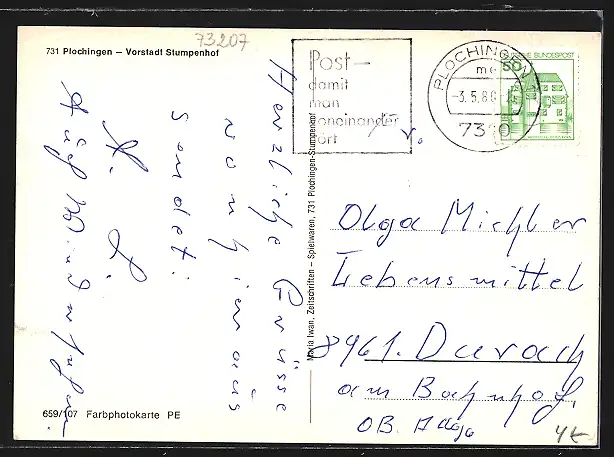 73207
731 Plochingen – Vorstadt Stumpenhof
Post–
damit
man
voneinander
hört
PLOCHINGEN
me
-3.5.80
7310
DEUTSCHE BUNDESPOST
50
Herzliche Grüsse
von hier aus
sendet:
Maria Iwan, Zeitschriften – Spielwaren, 731 Plochingen-Stumpenhof
Olga Michler
Lebensmittel
8961. Durach
am Bahnhof.
OB. Allgä
659/107 Farbphotokarte PE